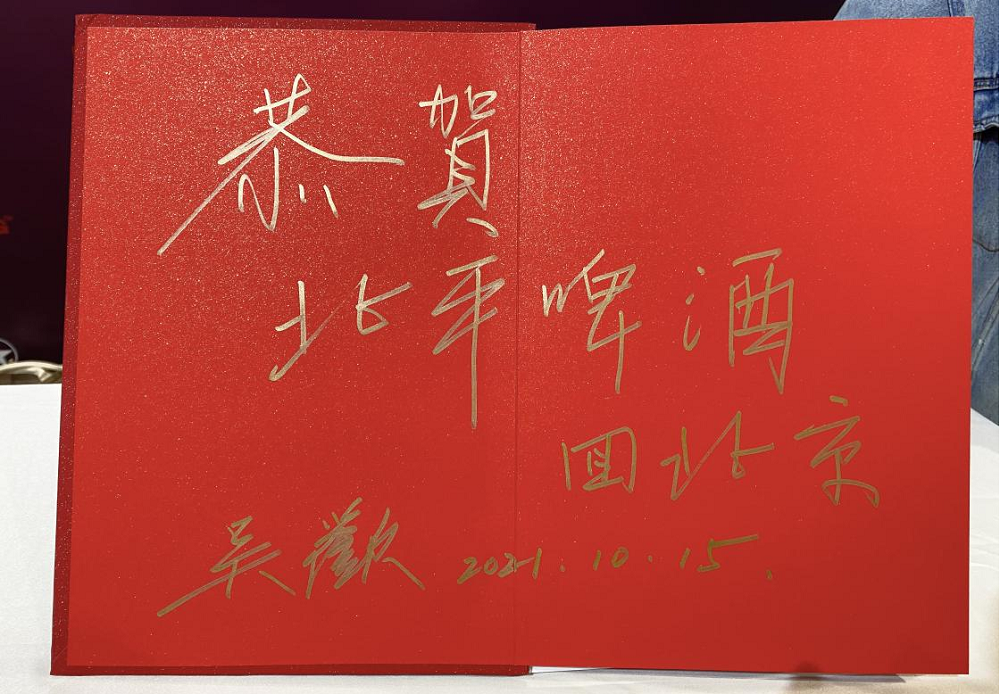 恭賀
北平啤酒
回北京
吴歡 2021.10.15.